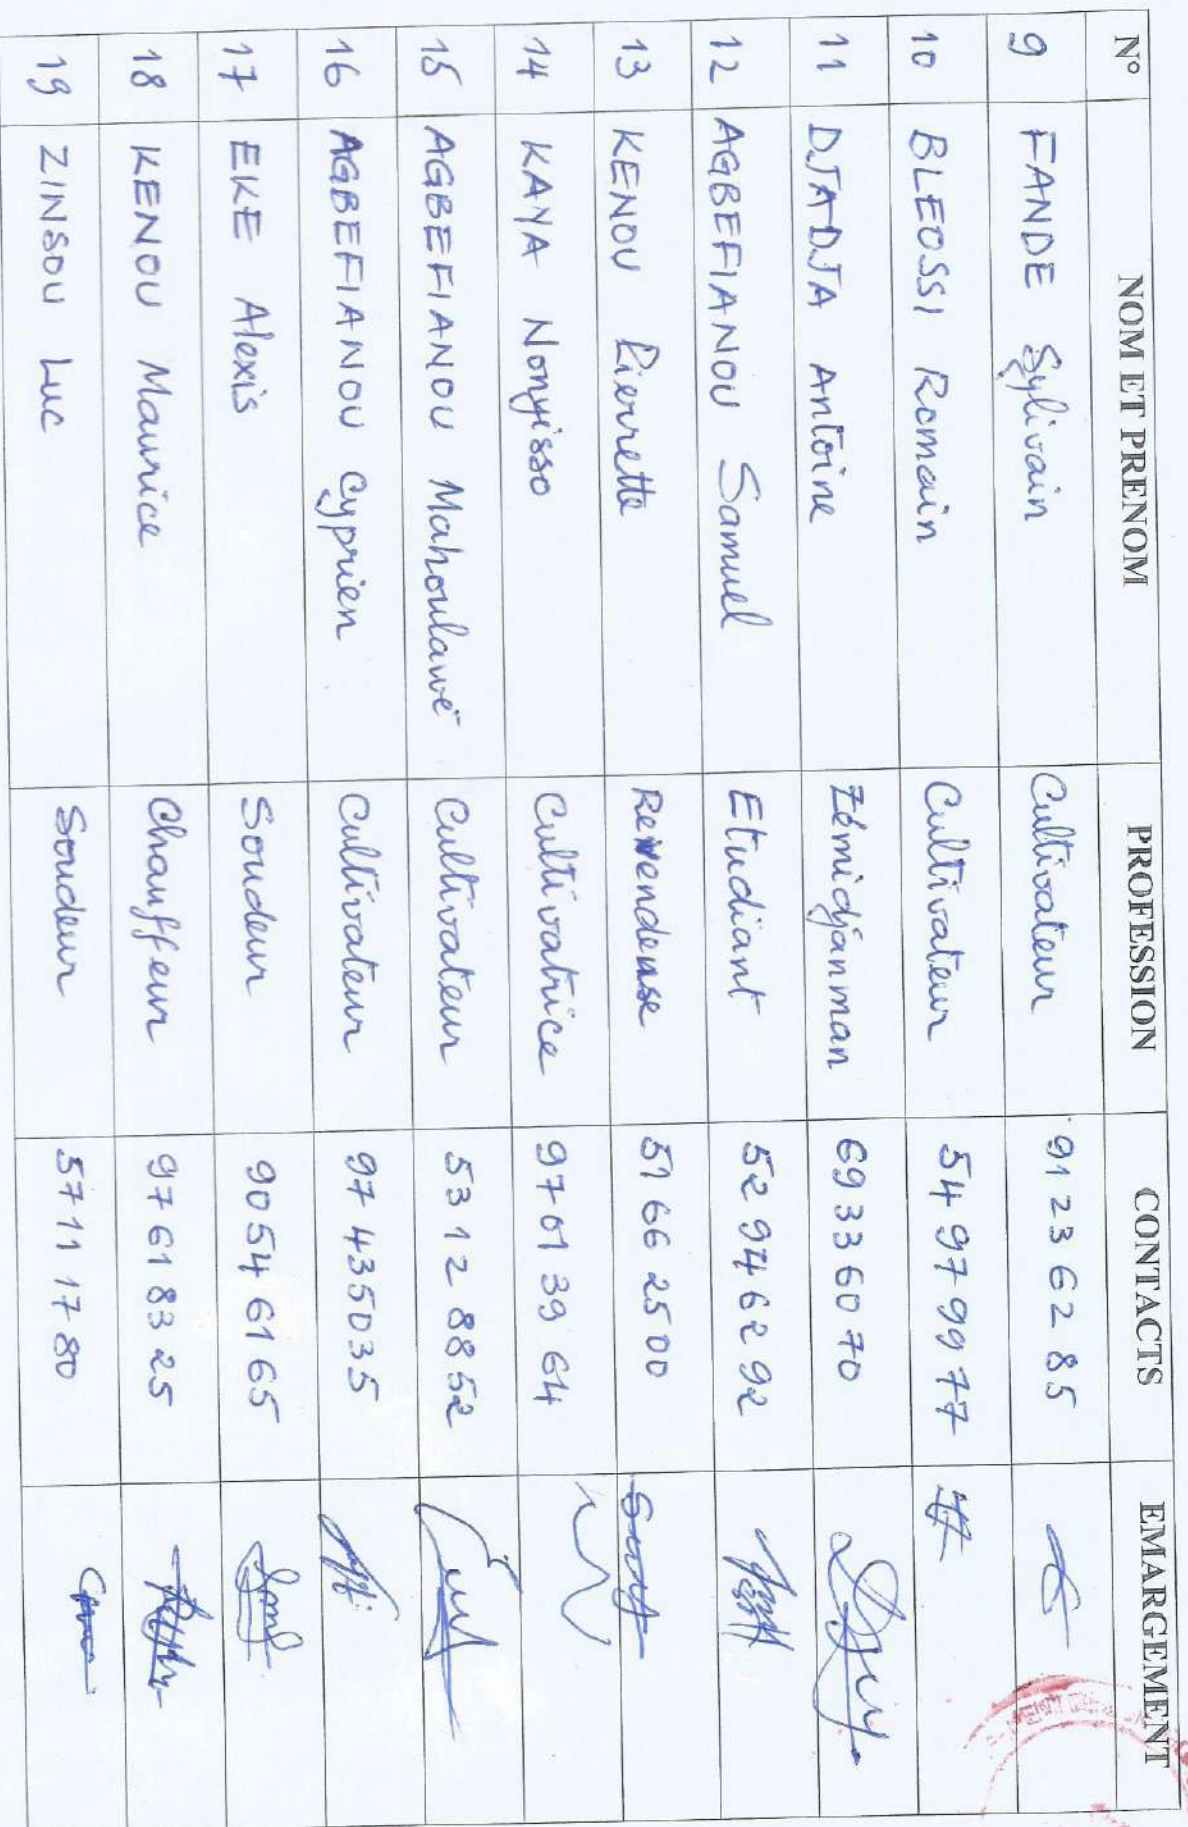 N° NOM ET PRENOM PROFESSION CONTACTS EMARGEMENT
9 FANDE Sylivain Cultivateur 91 23 62 85
10 BLEOSSI Romain Cultivateur 54 97 99 77
11 DJADJA Antoine Zémidjanman 69 33 60 70
12 AGBEFIANOU Samuel Etudiant 52 94 62 92
13 KENOU Pierrette Revendeuse 51 66 25 00
14 KAYA Nonyisso Cultivatrice 97 01 39 64
15 AGBEFIANOU Mahoulawé Cultivateur 53 12 88 52
16 AGBEFIANOU Cyprien Cultivateur 97 43 50 35
17 EKE Alexis Soudeur 90 54 61 65
18 KENOU Maurice Chauffeur 97 61 83 25
19 ZINSOU Luc Soudeur 57 11 17 80